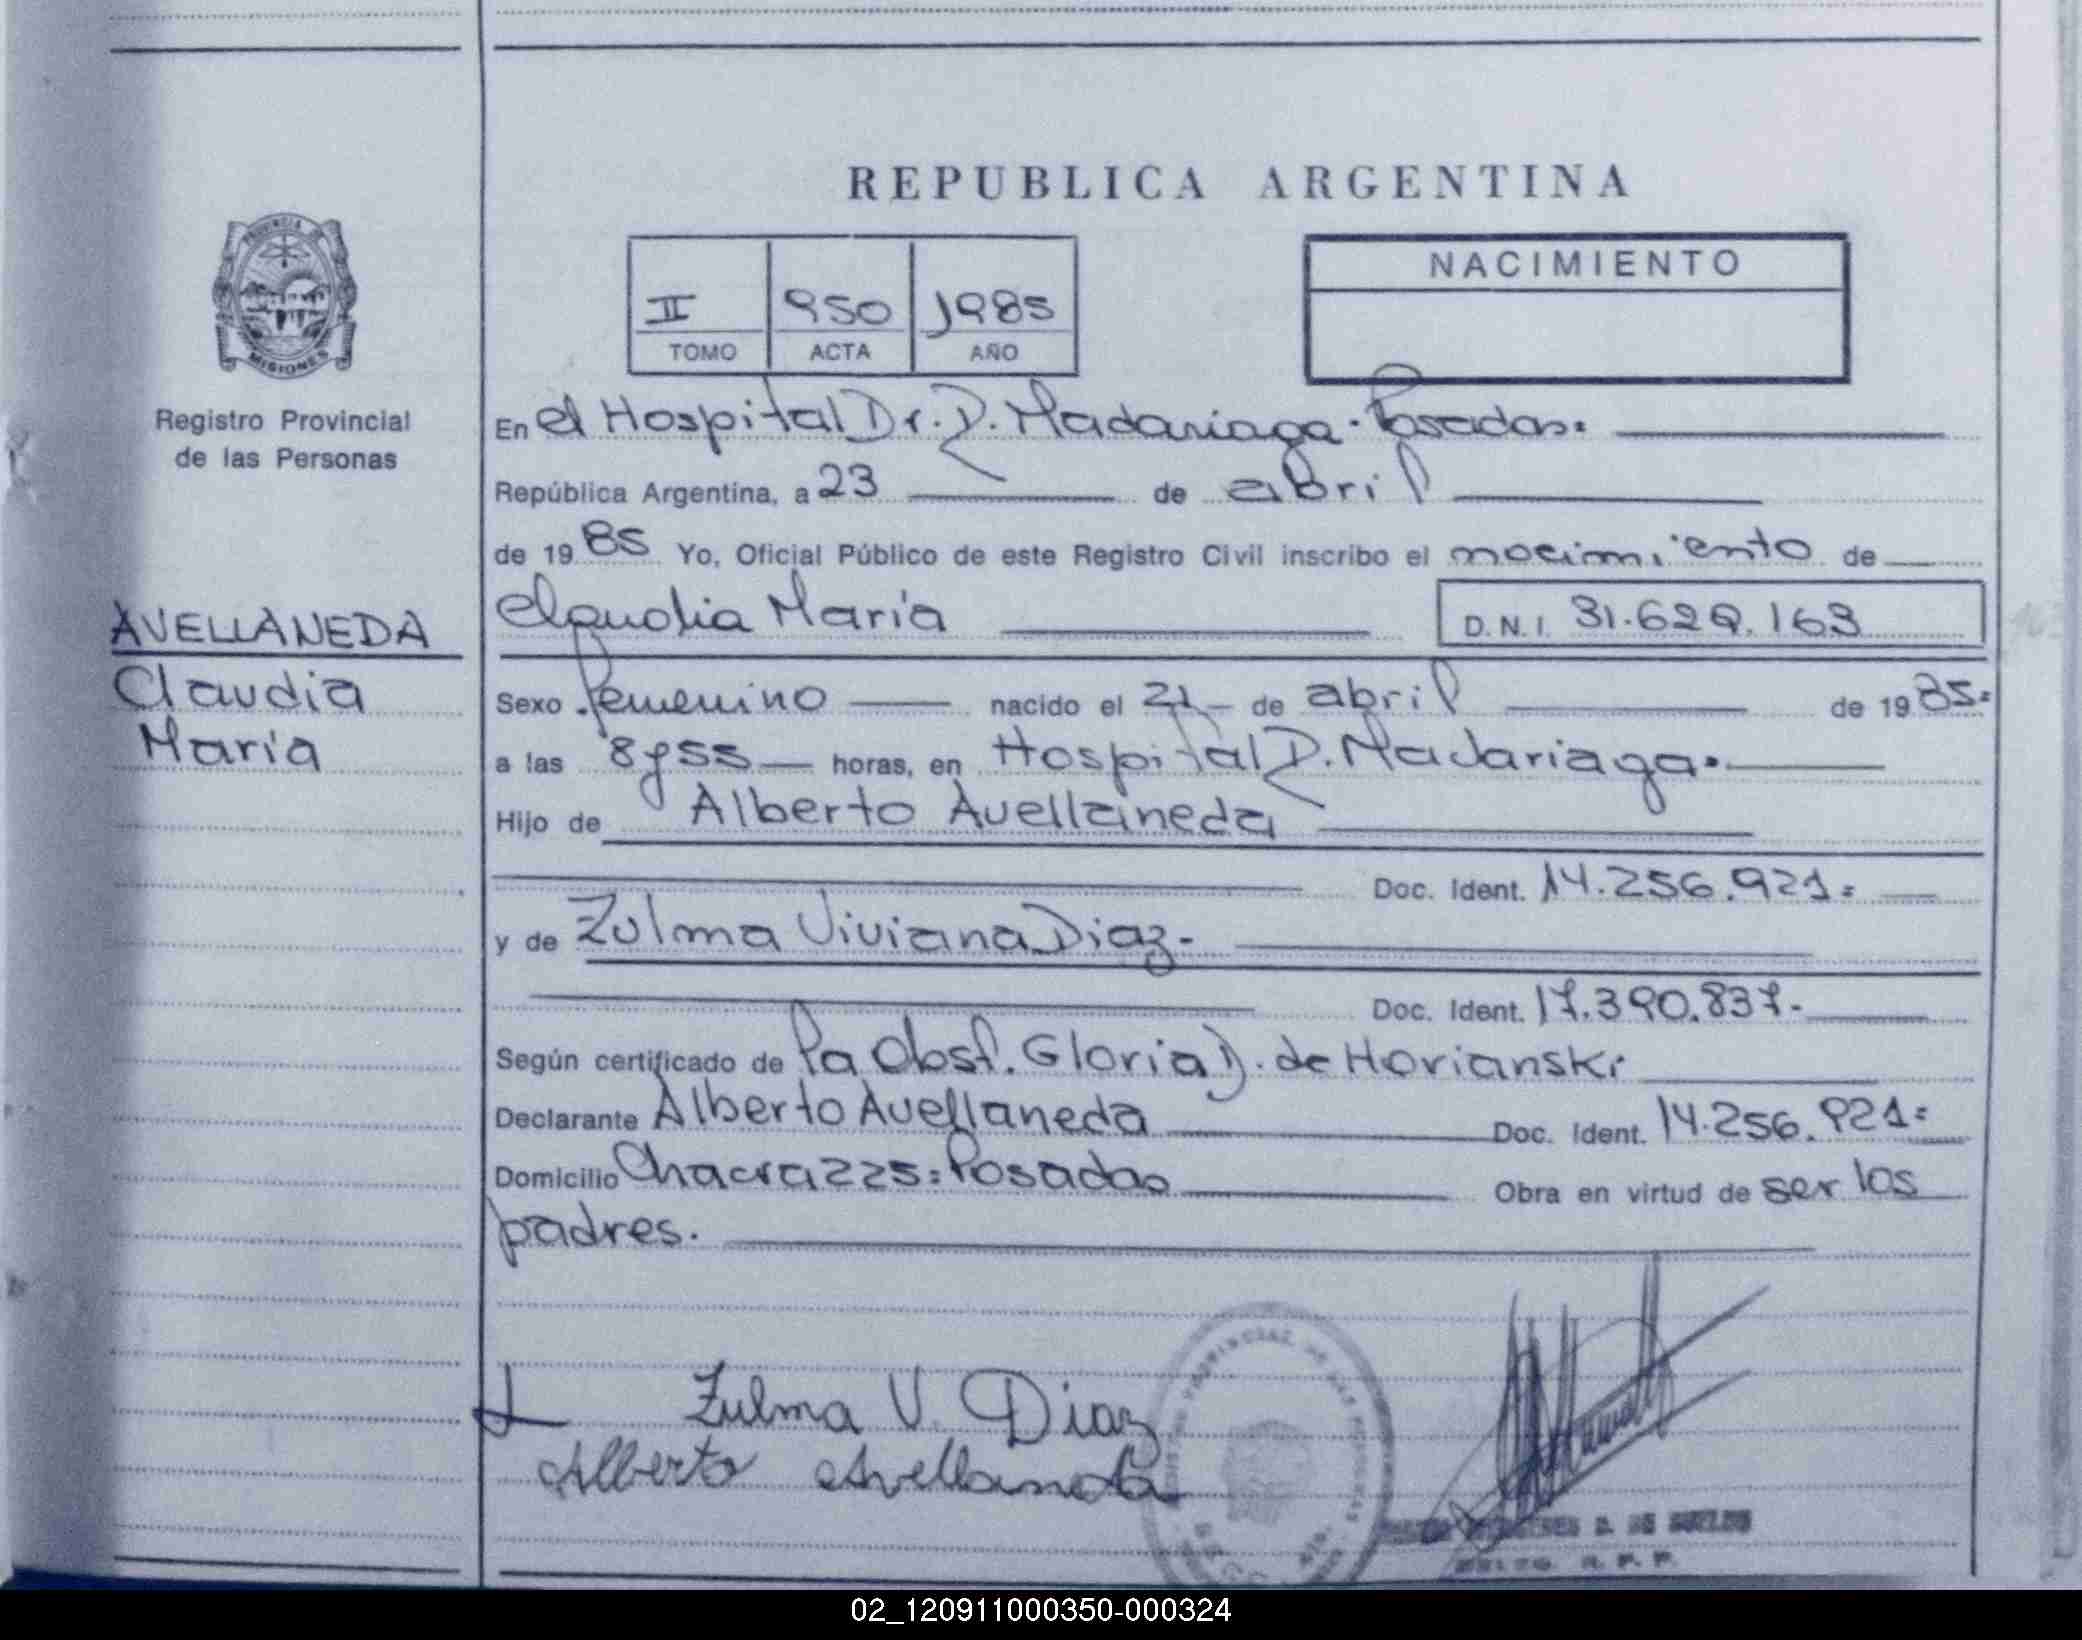 REPUBLICA ARGENTINA
PROVINCIA DE
MISIONES
Registro Provincial
de las Personas
II
TOMO
950
ACTA
1985
AÑO
NACIMIENTO
En el Hospital Dr. R. Madariaga - Posadas.
República Argentina, a 23 de abril
de 1985 Yo, Oficial Público de este Registro Civil inscribo el nacimiento de
AVELLANEDA
Claudia
María
Claudia María D.N.I. 31.629.163
Sexo femenino nacido el 21 de abril de 1985=
a las 8 y 55 horas, en Hospital R. Madariaga.
Hijo de Alberto Avellaneda
Doc. Ident. 14.256.921=
y de Zulma Viviana Diaz-
Doc. Ident. 17.390.837-
Según certificado de la Obst. Gloria D. de Horianski
Declarante Alberto Avellaneda Doc. Ident. 14.256.921=
Domicilio Chacra 225= Posadas Obra en virtud de ser los
padres.
Zulma V. Diaz
Alberto Avellaneda
02_120911000350-000324